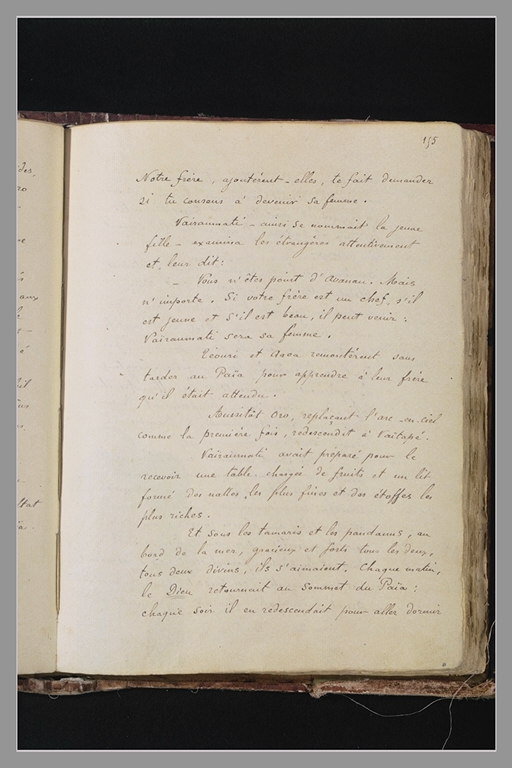 155
Notre frère, ajoutèrent-elles, te fait demander
si tu consens à devenir sa femme.
Vaïraumati - ainsi se nommait la jeune
fille - examina les étrangères attentivement
et leur dit:
- Vous n'êtes point d'Avanau. Mais
n'importe. Si votre frère est un chef, s'il
est jeune et s'il est beau, il peut venir:
Vaïraumati sera sa femme.
Téouri et Oaoa remontèrent sans
tarder au Païa pour apprendre à leur frère
qu'il était attendu.
Aussitôt Oro, replaçant l'arc-en-ciel
comme la première fois, redescendit à Vaïtapé.
Vaïraumati avait préparé pour le
recevoir une table chargée de fruits et un lit
formé des nattes les plus fines et des étoffes les
plus riches.
Et sous les tamaris et les pandanus, au
bord de la mer, gracieux et forts tous les deux,
tous deux divins, ils s'aimaient. Chaque matin,
le Dieu retournait au sommet du Païa;
chaque soir il en redescendait pour aller dormir